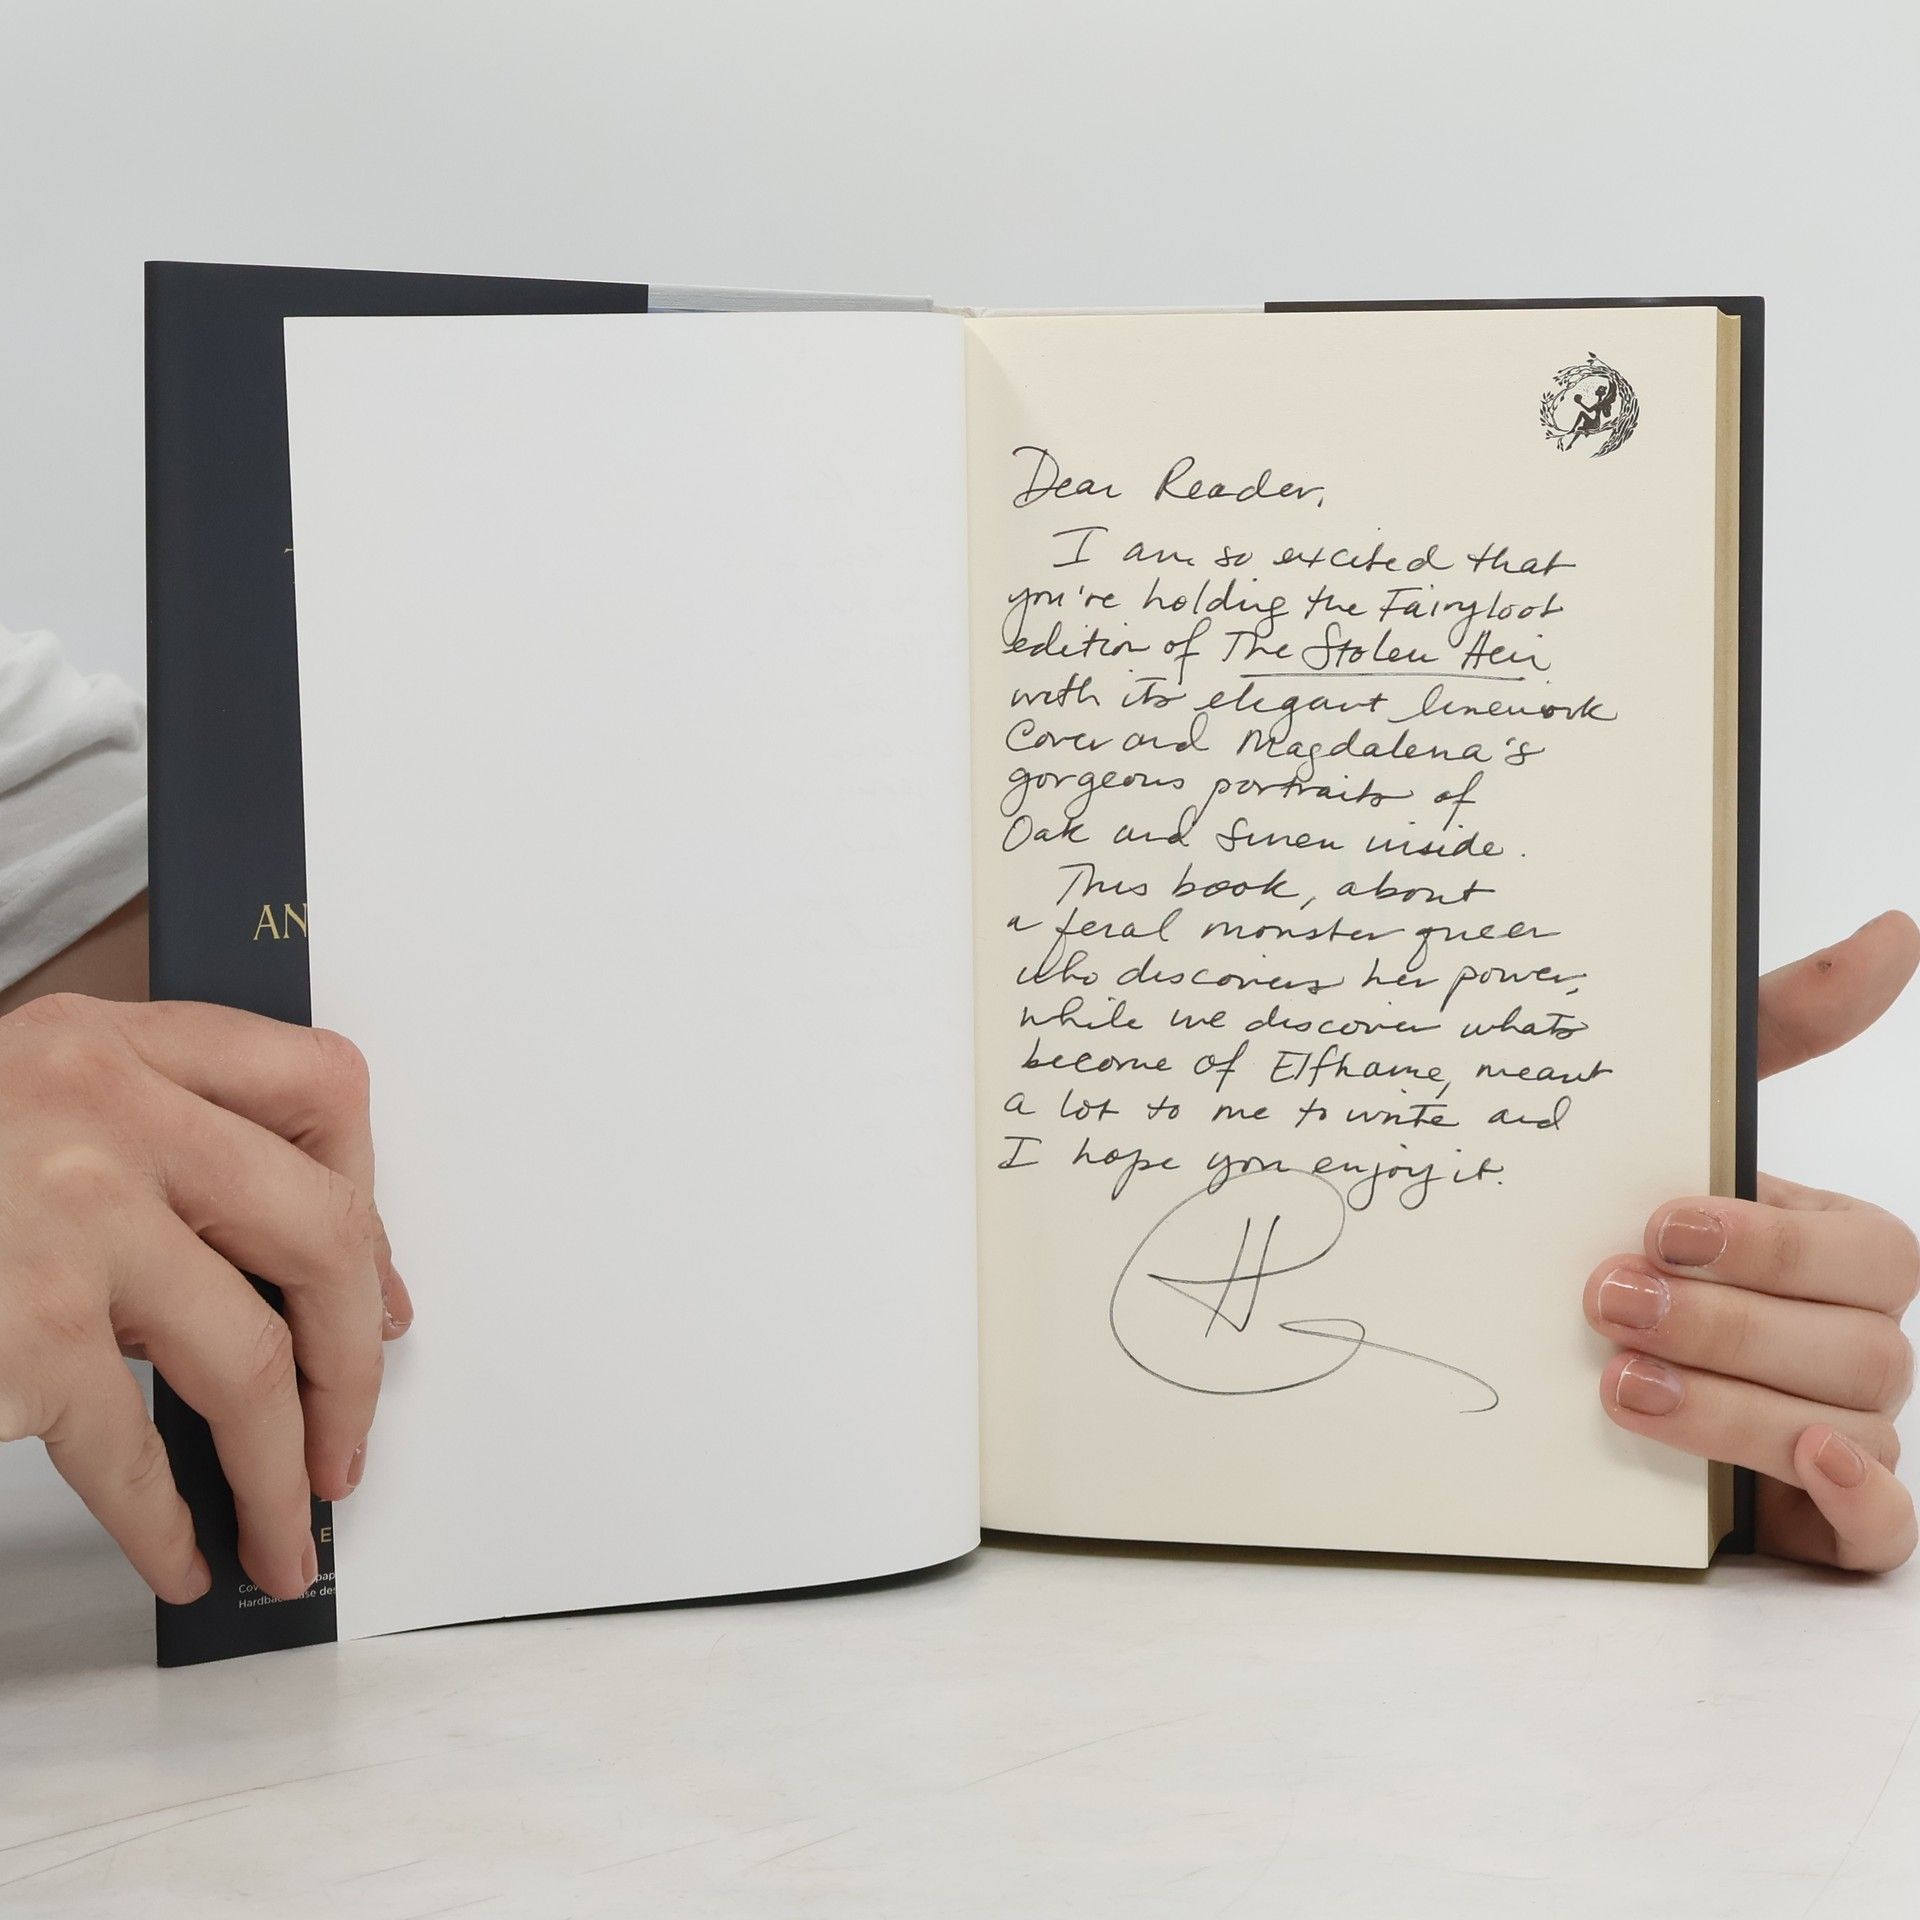 AN
E
Cov
pap
Hardba
ase des
Dear Reader,
I am so excited that
you're holding the Fairyloot
edition of The Stolen Heir
with its elegant linework
cover and Magdalena's
gorgeous portraits of
Oak and Suren inside.
This book, about
a feral monster queen
who discovers her power,
while we discover whats
become of Elfhame, meant
a lot to me to write and
I hope you enjoy it.